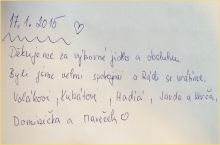 17. 1. 2015
Děkujeme za výborné jídlo a obsluhu.
Byli jsme velmi spokojeni a Rádi se vrátíme.
Volákovi, Kubátovi, Hadiá, Jarda a Verča,
Dominička a Mareček